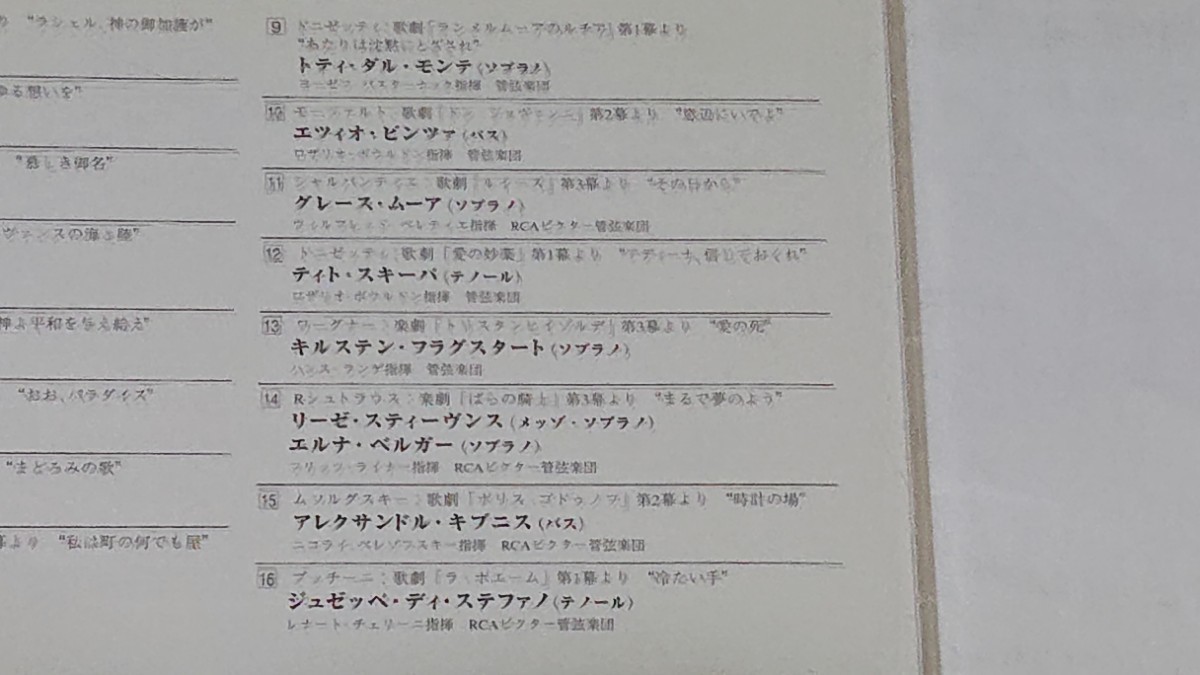 “ラシェル、神の御加護が”
る想いを”
“慕しき御名”
ヴァンスの海と陸”
神よ平和を与え給え”
“おお、パラダイス”
“まどろみの歌”
幕より “私は町の何でも屋”
9 ドニゼッティ：歌劇「ランメルムーアのルチア」第1幕より
“あたりは沈黙にとざされ”
トティ・ダル・モンテ（ソプラノ）
ヨーゼフ・パスターナック指揮 管弦楽団
10 モーツァルト：歌劇「ドン・ジョヴァンニ」第2幕より “窓辺にいでよ”
エツィオ・ピンツァ（バス）
ロザリオ・ボウルドン指揮 管弦楽団
11 シャルパンティエ：歌劇「ルイーズ」第3幕より “その日から”
グレース・ムーア（ソプラノ）
ウィルフレッド・ペレティエ指揮 RCAビクター管弦楽団
12 ドニゼッティ：歌劇「愛の妙薬」第1幕より “アディーナ、信じておくれ”
ティト・スキーパ（テノール）
ロザリオ・ボウルドン指揮 管弦楽団
13 ワーグナー：楽劇「トリスタンとイゾルデ」第3幕より “愛の死”
キルステン・フラグスタート（ソプラノ）
ハンス・ランゲ指揮 管弦楽団
14 R・シュトラウス：楽劇「ばらの騎士」第3幕より “まるで夢のよう”
リーゼ・スティーヴンス（メッゾ・ソプラノ）
エルナ・ベルガー（ソプラノ）
フリッツ・ライナー指揮 RCAビクター管弦楽団
15 ムソルグスキー：歌劇「ボリス・ゴドゥノフ」第2幕より “時計の場”
アレクサンドル・キプニス（バス）
ニコライ・ベレゾフスキー指揮 RCAビクター管弦楽団
16 プッチーニ：歌劇「ラ・ボエーム」第1幕より “冷たい手”
ジュゼッペ・ディ・ステファノ（テノール）
レナート・チェリーニ指揮 RCAビクター管弦楽団